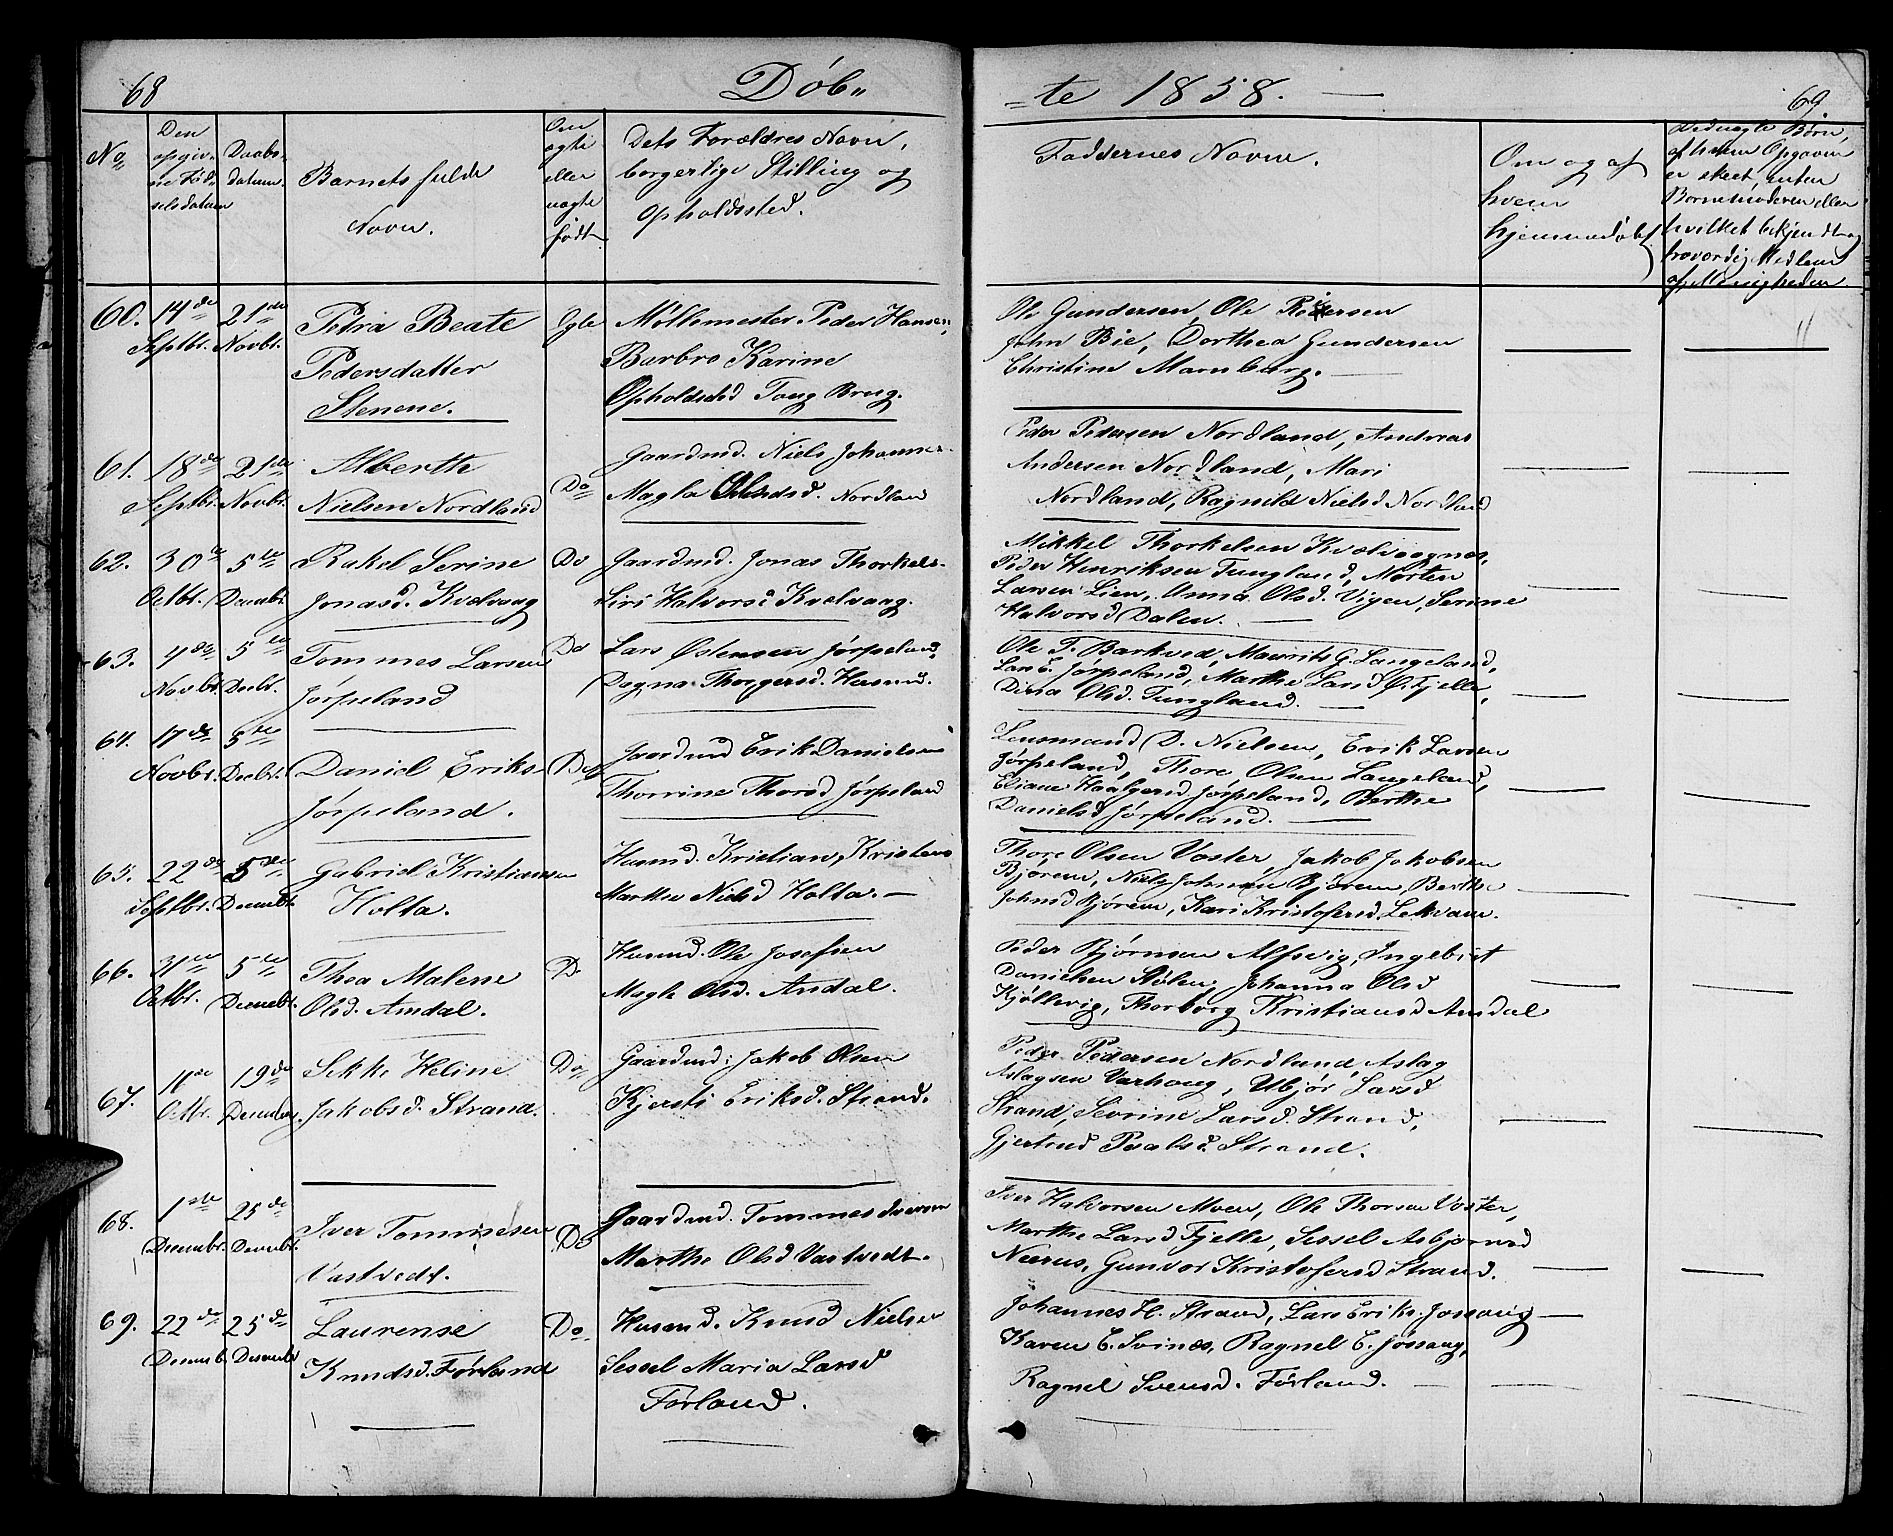 68
Døb„
-te 1858. —
69.
No
Den opgiv-
ne Fød-
selsdatum
Daabs-
datum.
Barnets fulde
Navn.
Om
ægte
eller
uægte
født
Dets Forældres Navn,
borgerlige Stilling og
Opholdssted.
Faddernes Navne.
Om og af
hvem
hjemmedøbt
Ved uægte Børn,
af hvem Opgaven
er skeet, enten
Barnemoderen eller
hvilket bekjendt og
troværdig Medlem
af Menigheden
60. 14de Septbr. 21de Novbr.
Petra Beate
Pedersdatter
Stenene.
Ægte
Møllemester Peder Hansen,
Barbro Karine
Opholdssted Toug Brug.
Ole Gundersen, Ole Petersen
John Bie, Dorthea Gundersen
Christine Marnburg. —
61. 18de Septbr. 21de Novbr.
Alberthe
Nielsen Nordland
Do
Gaardmd. Niels Johannes-
Magla Olsd. Nordland
Peder Pedersen Nordland, Andreas
Andersen Nordland, Mari
Nordland, Ragnild Nielsd Nordland
62. 30te Octbr. 5te Decembr.
Rakel Serine
Jonasd. Kvelvaag
Do
Gaardmd. Jonas Thorkels-
Siri Halvorsd Kvelvaag.
Mikkel Thorkelsen Kvelvognæs,
Peder Henriksen Tungland, Morten
Larsen Lien, Anna Olsd. Vigen, Serine
Halvorsd Dalen. —
63. 4de Novbr. 5te Decbr.
Tommes Larsen
Jørpeland
Do
Lars Østensen Jørpeland,
Dagna Thorgersd. Husmd.
Ole T. Barkved, Maurits G. Langeland,
Lars E. Jørpeland, Marthe Larsd Ø. Fjelle,
Dina Olsd. Tungland. —
64. 17de Novbr. 5te Decbr.
Daniel Eriks-
Jørpeland.
Do
Gaardmd Erik Danielsen
Thorrine Thorsd Jørpeland
Lensmand D. Nielsen, Erik Larsen
Jørpeland, Thore Olsen Langeland,
Eliane Haalgersd Jørpeland, Berthe
Danielsd Jørpeland. —
65. 22de Septbr. 5te Decembr.
Gabriel Kristiansen
Holta.
Husmd. Kristian Kristens
Marthe Nielsd Holta. —
Thore Olsen Voster, Jakob Jakobsen
Bjørem, Niels Johnsen Bjørem, Berthe
Johnsd Bjørem, Kari Kristofersd. Lekvam.
66. 31te Octbr. 5te Decembr.
Thea Malene
Olsd. Amdal.
D
Husmd. Ole Josefsen
Magla Olsd. Amdal.
Peder Bjørnsen Alsvig, Ingebret
Danielsen Stølen, Johanna Olsd
Kjøllevig, Thorborg Kristiansd Amdal
67. 11te Octbr. 19de Decembr.
Sekke Heline
Jakobsd. Strand.
Do
Gaardmd: Jakob Olsen
Kjersti Eriksd. Strand.
Peder Pedersen Nordland, Aslag
Aslagsen Varhoug, Abjør Larsd
Strand, Severine Larsd. Strand,
Gjertrud Paalsd. Strand.
68. 1ste Decembr. 25de Decembr.
Iver Tommesen
Vastvedt.
Do
Gaardmd. Tommes Iversen
Marthe Olsd Vastvedt.
Iver Halvorsen Moen, Ole Thorsen Voster,
Marthe Larsd Fjelle, Sessel Asbjørnsd
Neerus, Gunvor Kristofersd Strand.
69. 22de Decemb. 25de Decembr
Laurense
Knudsd. Førland
Do
Husmd. Knud Nielsen
Sessel Maria Larsd
Førland.
Johannes H. Strand, Lars Eriks. Jøssang
Karen E. Svinæs, Ragnel E. Jøssang,
Ragnel Svensd. Førland.